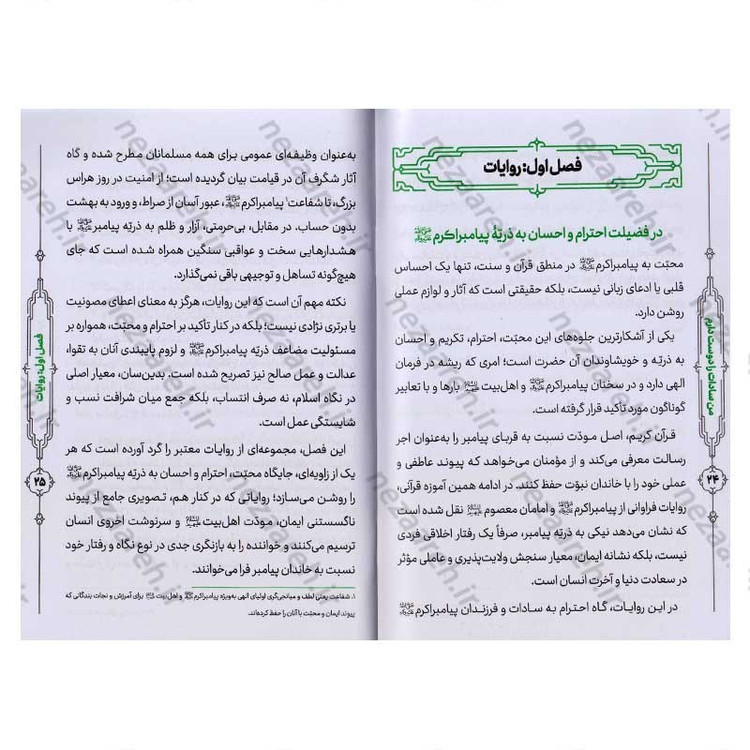 فصل اول: روایات
در فضیلت احترام و احسان به ذریّهٔ پیامبراکرم ﷺ
محبّت به پیامبراکرم ﷺ در منطق قرآن و سنت، تنها یک احساس
قلبی یا ادعای زبانی نیست، بلکه حقیقتی است که آثار و لوازم عملی
روشن دارد.
یکی از آشکارترین جلوه‌های این محبّت، احترام، تکریم و احسان
به ذریّه و خویشاوندان آن حضرت است؛ امری که ریشه در فرمان
الهی دارد و در سخنان پیامبراکرم ﷺ و اهل‌بیت بارها و با تعابیر
گوناگون مورد تأکید قرار گرفته است.
قرآن کریم، اصل مودّت نسبت به قربای پیامبر را به‌عنوان اجر
رسالت معرفی می‌کند و از مؤمنان می‌خواهد که پیوند عاطفی و
عملی خود را با خاندان نبوّت حفظ کنند. در ادامه همین آموزه قرآنی،
روایات فراوانی از پیامبراکرم ﷺ و امامان معصوم نقل شده است
که نشان می‌دهد نیکی به ذریّه پیامبر، صرفاً یک رفتار اخلاقی فردی
نیست، بلکه نشانه ایمان، معیار سنجش ولایت‌پذیری و عاملی مؤثر
در سعادت دنیا و آخرت انسان است.
در این روایات، گاه احترام به سادات و فرزندان پیامبراکرم ﷺ
من سادات را دوست دارم
۲۴
به‌عنوان وظیفه‌ای عمومی برای همه مسلمانان مطرح شده و گاه
آثار شگرف آن در قیامت بیان گردیده است؛ از امنیت در روز هراس
بزرگ، تا شفاعت۱ پیامبراکرم ﷺ، عبور آسان از صراط، و ورود به بهشت
بدون حساب. در مقابل، بی‌حرمتی، آزار و ظلم به ذریّه پیامبر با
هشدارهایی سخت و عواقبی سنگین همراه شده است که جای
هیچ‌گونه تساهل و توجیهی باقی نمی‌گذارد.
نکته مهم آن است که این روایات، هرگز به معنای اعطای مصونیت
یا برتری نژادی نیست؛ بلکه در کنار تأکید بر احترام و محبّت، همواره بر
مسئولیت مضاعف ذریّه پیامبراکرم ﷺ و لزوم پایبندی آنان به تقوا،
عدالت و عمل صالح نیز تصریح شده است. بدین‌سان، معیار اصلی
در نگاه اسلام، نه صرف انتساب، بلکه جمع میان شرافت نسب و
شایستگی عمل است.
این فصل، مجموعه‌ای از روایات معتبر را گرد آورده است که هر
یک از زاویه‌ای، جایگاه محبّت، احترام و احسان به ذریّه پیامبراکرم ﷺ
را روشن می‌سازد؛ روایاتی که در کنار هم، تصویری جامع از پیوند
ناگسستنی ایمان، مودّت اهل‌بیت و سرنوشت اخروی انسان
ترسیم می‌کنند و خواننده را به بازنگری جدی در نوع نگاه و رفتار خود
نسبت به خاندان پیامبر فرا می‌خوانند.
۱. شفاعت یعنی لطف و میانجی‌گری اولیای الهی به‌ویژه پیامبراکرم ﷺ و اهل‌بیت برای آمرزش و نجات بندگانی که
پیوند ایمان و محبّت با آنان را حفظ کرده‌اند.
فصل اول: روایات
۲۵
nezaareh.ir